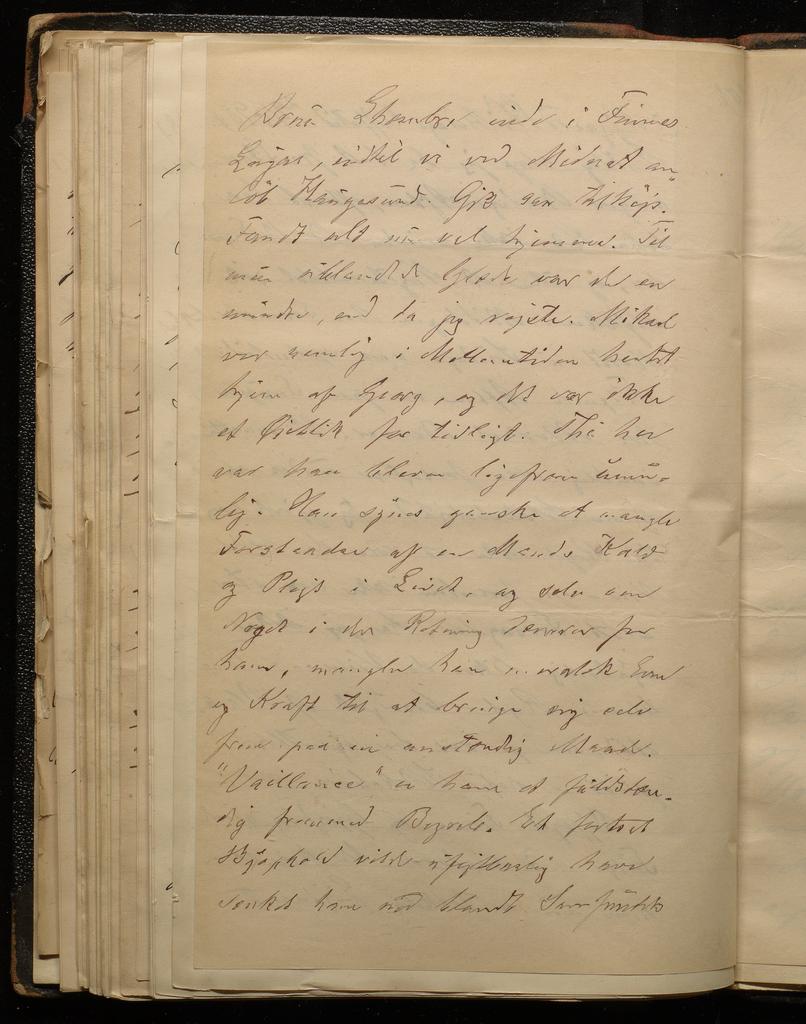 inde i Finnes
, indtil vi ved Midnat an-
löb Haugesund. Gik saa tilkøjs.
Fandt alt nu vel hjemme. Til
min Glæde var de en
mindre, end da jeg rejste. Mikael
var nemlig i Mellemtiden hentet
hjem af Georg, og det var ikke
et Øieblik for tidligt. Thi her
var han bleven ligefrem umu-
lig. Han synes ganske at mangle
Forstaaelse af en Mands Kald
og Pligt i Livet, og selv om
Noget i den Retning for
ham, mangler han moralsk Evne
og Kraft til at bringe sig selv
frem paa en anstændig Maade.
"Vaillance" er ham et fuldstæn-
dig fremmed Begreb. Et fortsat
Ophold vilde ufejlbarlig have
senket ham ned blandt Samfundets